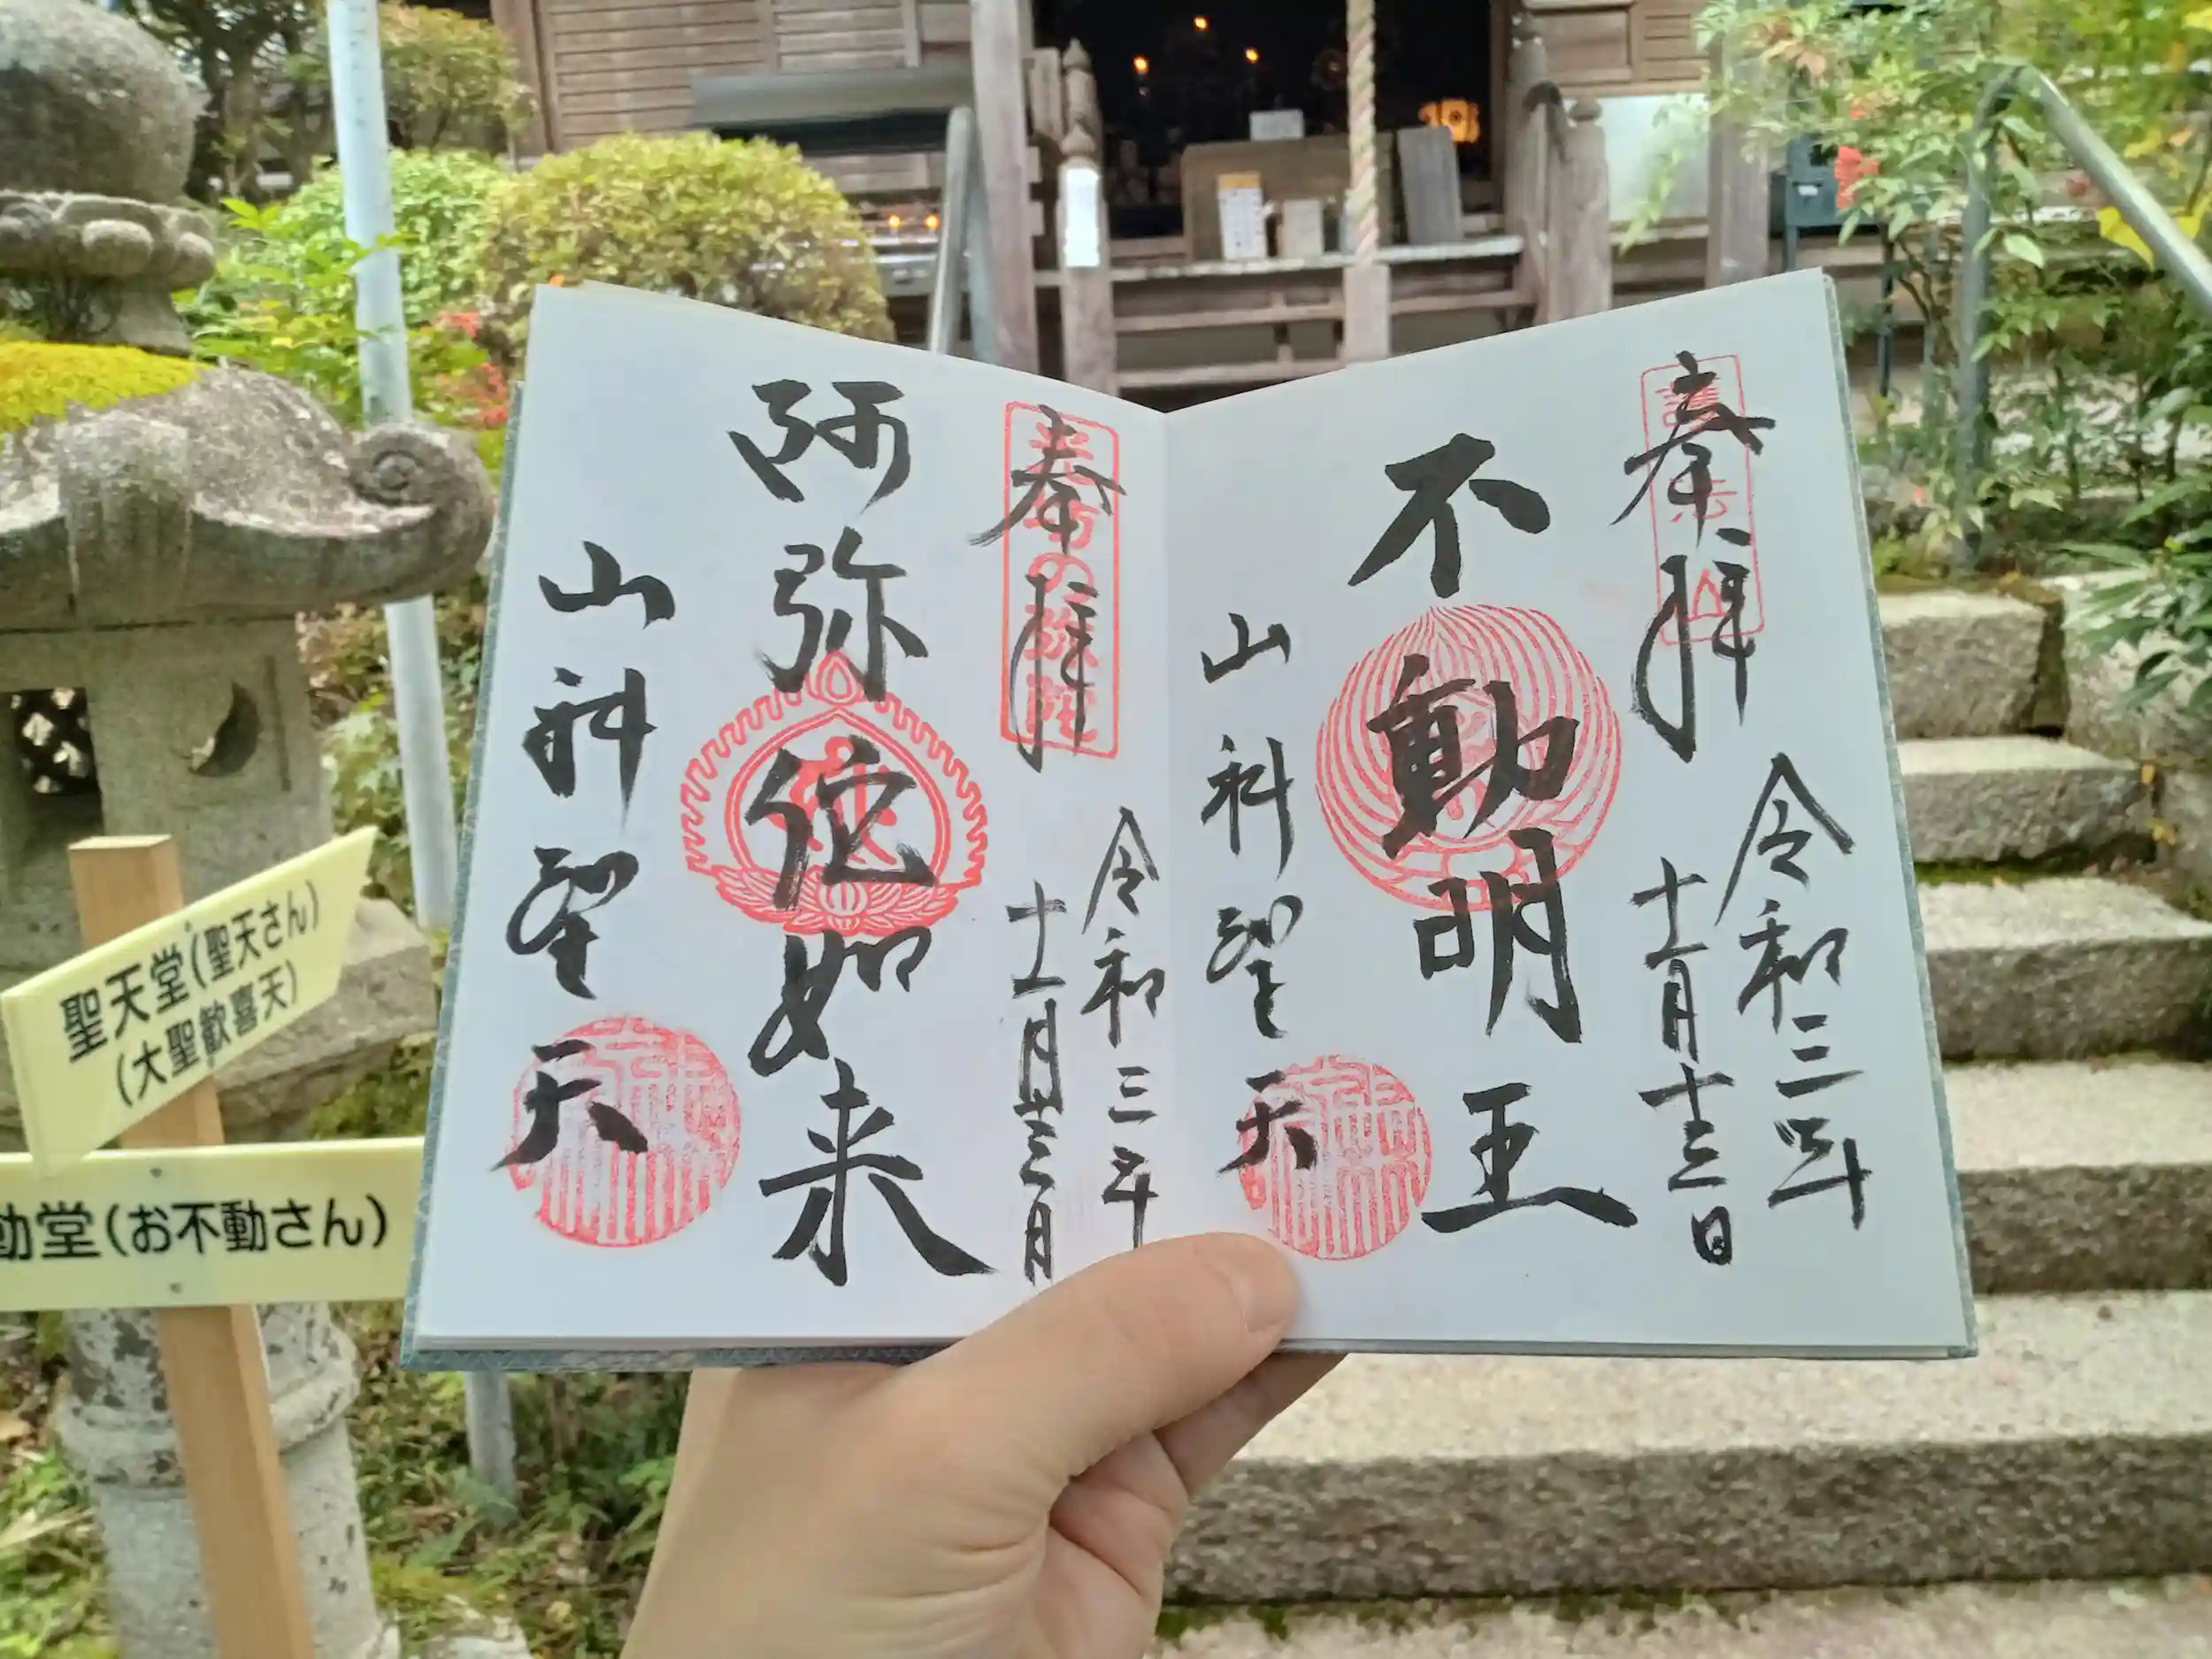 奉拝
令和三年
十一月十三日
不動明王
山科聖天
奉拝
令和三年
十一月十三日
阿弥陀如来
山科聖天
聖天堂(聖天さん)
(大聖歓喜天)
動堂(お不動さん)